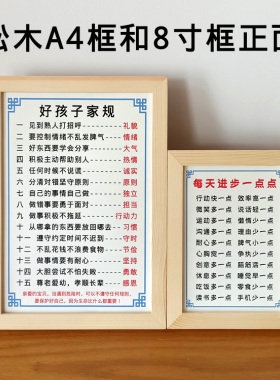 松木A4框和8寸框正面
好孩子家规
一 见到熟人打招呼----礼貌
二 要控制情绪不乱发脾气--情绪
三 好东西要学会分享----大气
四 积极主动帮助别人----热情
五 任何时候不说谎----诚实
六 分清对错坚守原则----原则
七 自己的事情自己做----独立
八 做错事要勇于面对----担当
九 做事积极不拖延----行动力
十 从哪拿的东西要放回哪去--习惯
十一 遵守约定时间不迟到----守时
十二 不乱花钱不浪费食物----节俭
十三 做事情要有耐心----坚持
十四 大胆尝试不怕失败----勇敢
十五 尊老爱幼，孝顺长辈----感恩
每天进步一点点
行动快一点 效率高一点
微笑多一点 说话轻一点
沟通多一点 理由少一点
耐心多一点 脾气小一点
心胸宽一点 争执少一点
休息多一点 睡觉早一点
吃饭多一点 零食少一点
读书多一点 手机少一点